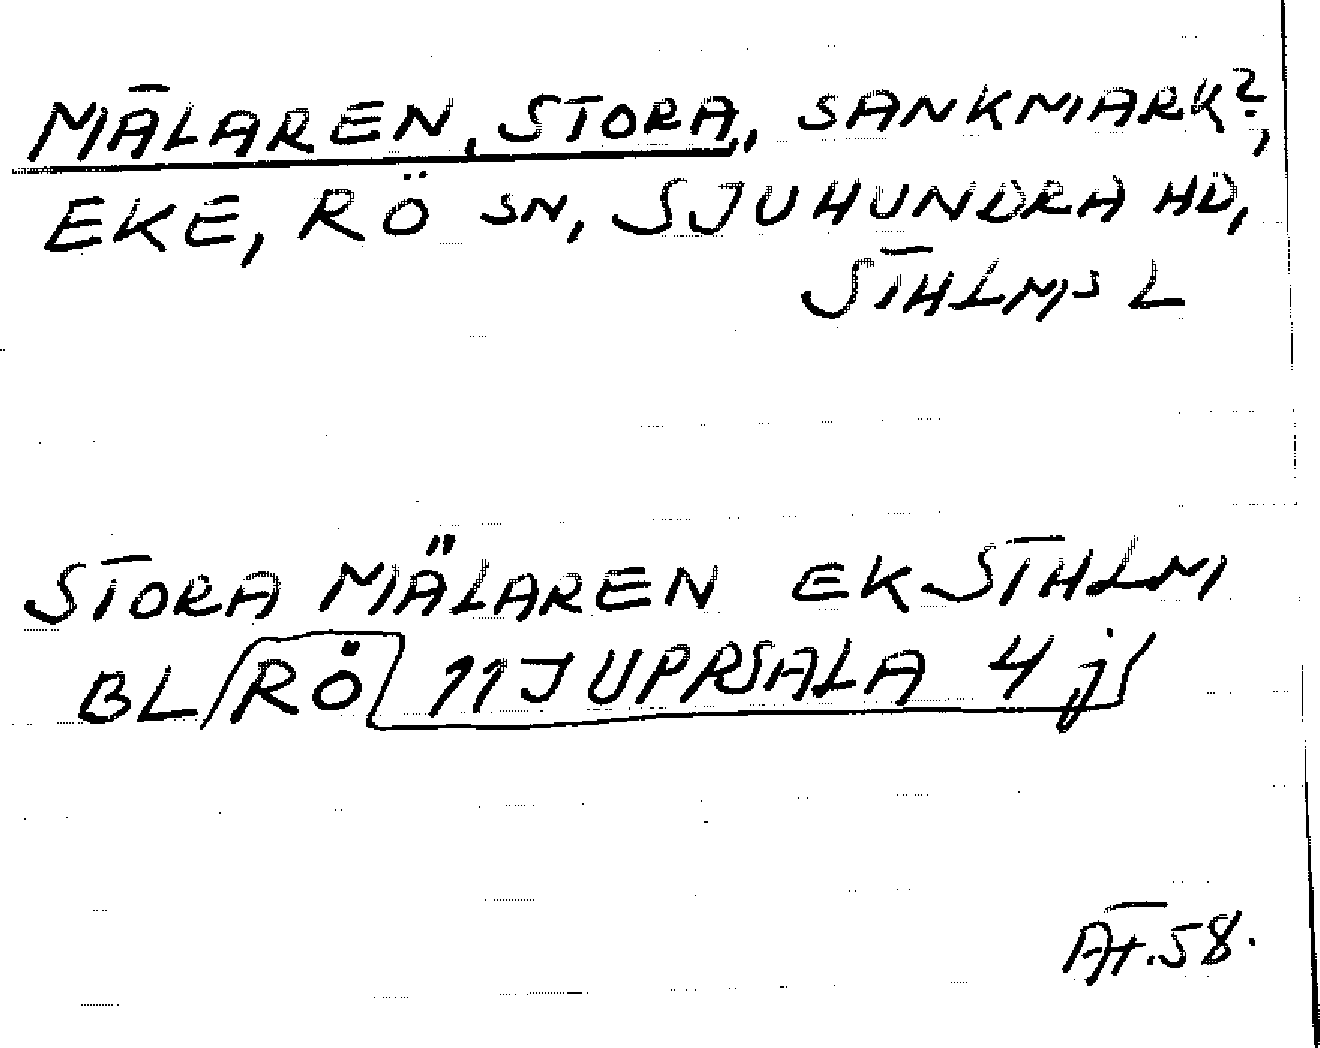 MÄLAREN, STORA, SANKMARK?,
EKE, RÖ SN, SJUHUNDRA HD,
STHLMS L
STORA MÄLAREN EK STHLM
BL RÖ 11J UPPSALA 4 j
ÄT.58.